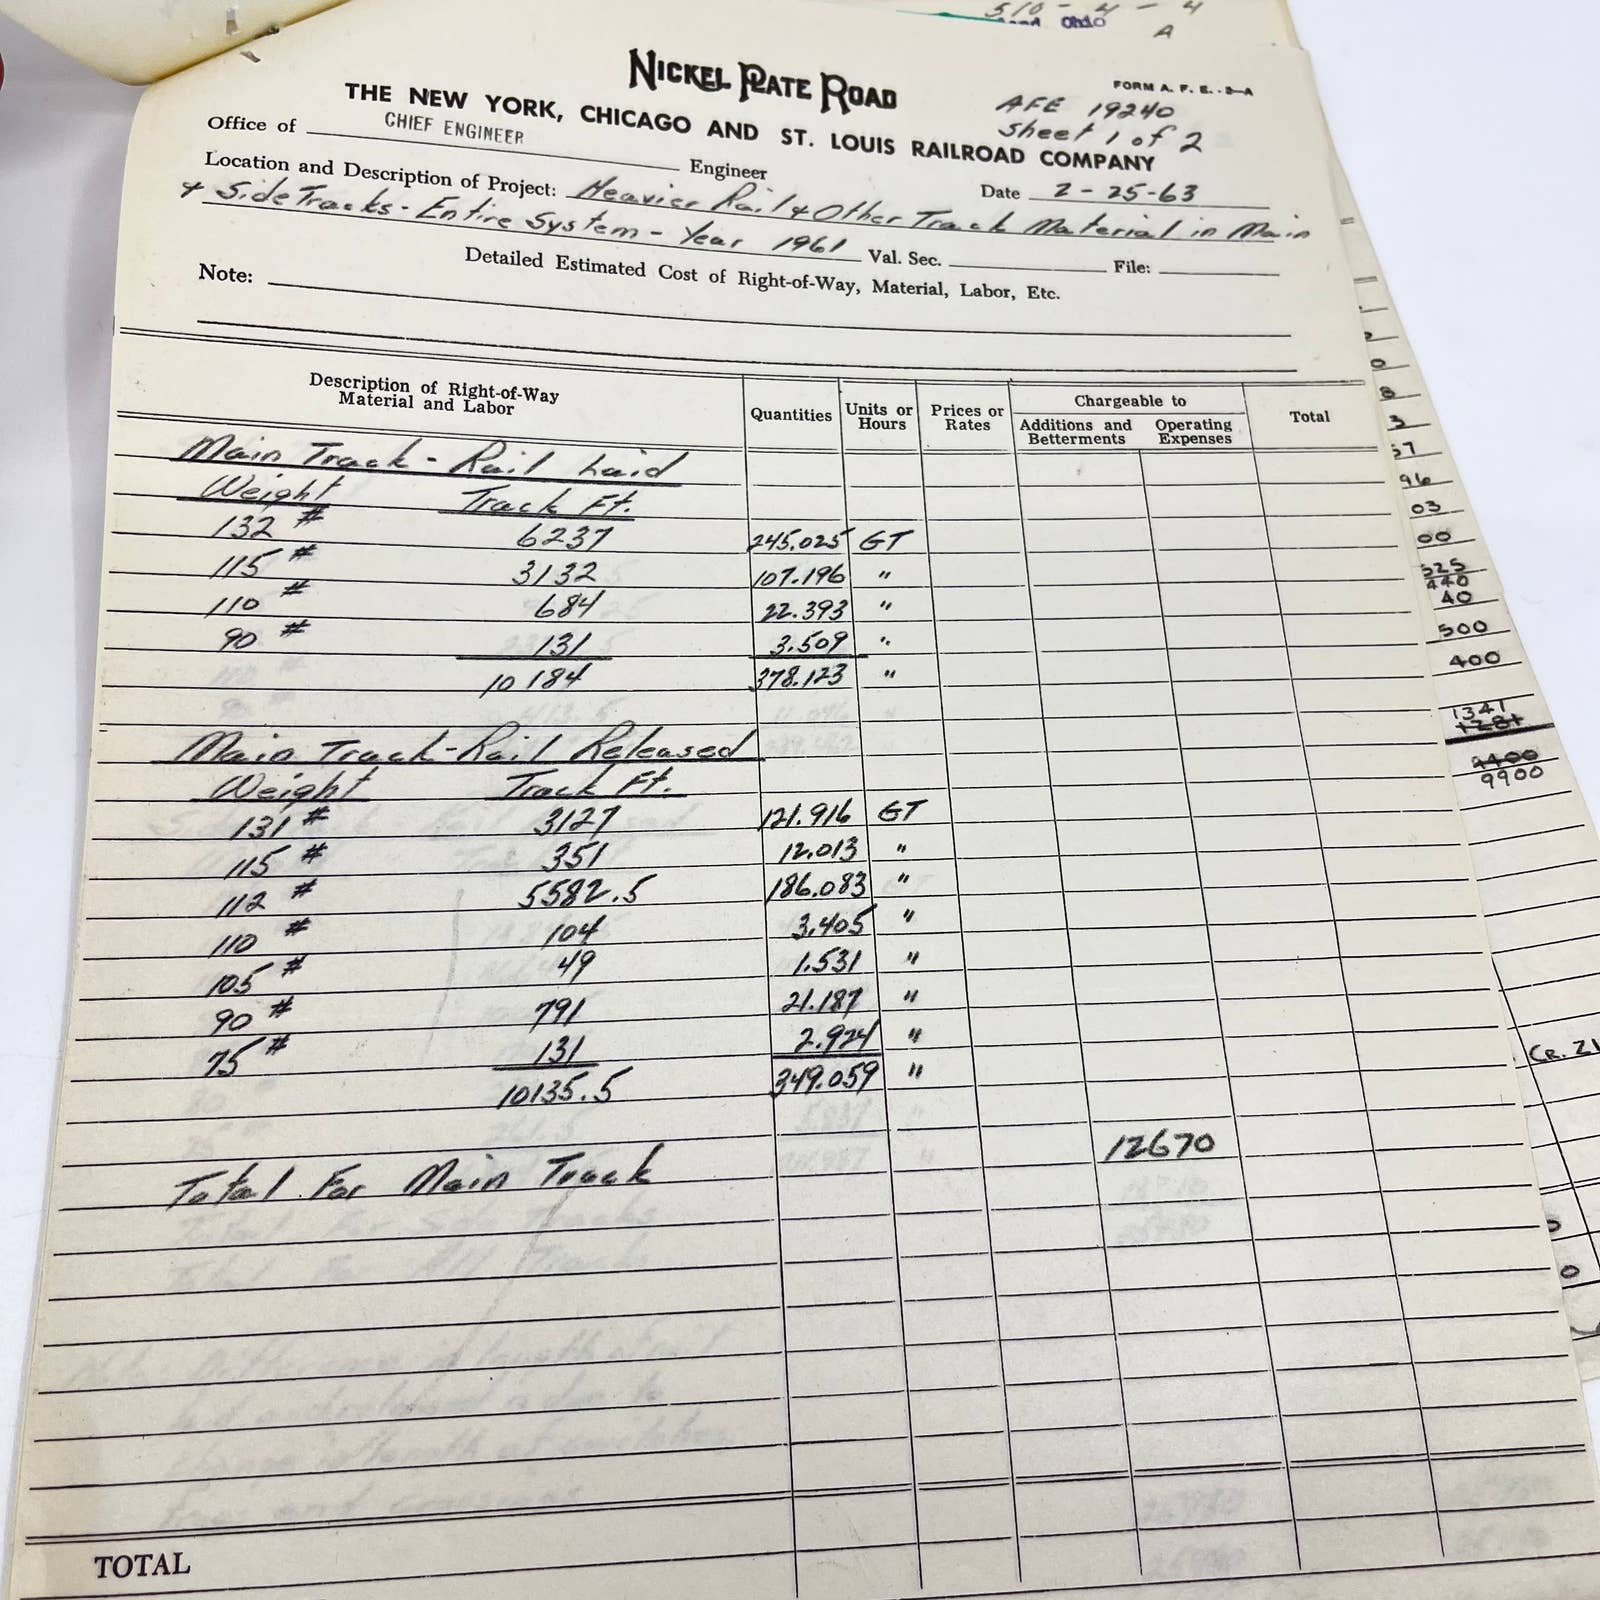 510 - 4 - 4
Ohio
A
NICKEL PLATE ROAD
FORM A. F. E. - 3-A
THE NEW YORK, CHICAGO AND ST. LOUIS RAILROAD COMPANY
AFE 19240
Sheet 1 of 2
Office of CHIEF ENGINEER Engineer
Date 2-25-63
Location and Description of Project: Heavier Rail & Other Track Material in Main
& Side Tracks - Entire System - Year 1961 Val. Sec. File:
Detailed Estimated Cost of Right-of-Way, Material, Labor, Etc.
Note:
Description of Right-of-Way Material and Labor Quantities Units or Hours Prices or Rates Chargeable to Additions and Betterments Operating Expenses Total
Main Track - Rail Laid
Weight Track Ft.
132 # 6237 245.025 GT
115 # 3132 107.196 "
110 # 684 22.393 "
90 # 131 3.509 "
10184 378.123 "
Main Track - Rail Released
Weight Track Ft.
131 # 3127 121.916 GT
115 # 351 12.013 "
112 # 5582.5 186.083 "
110 # 104 3.405 "
105 # 49 1.531 "
90 # 791 21.187 "
75 # 131 2.924 "
10135.5 349.059 "
Total For Main Track 12670
TOTAL
57
96
03
00
525
440
40
500
400
1341
9400
9900
Cr. 21